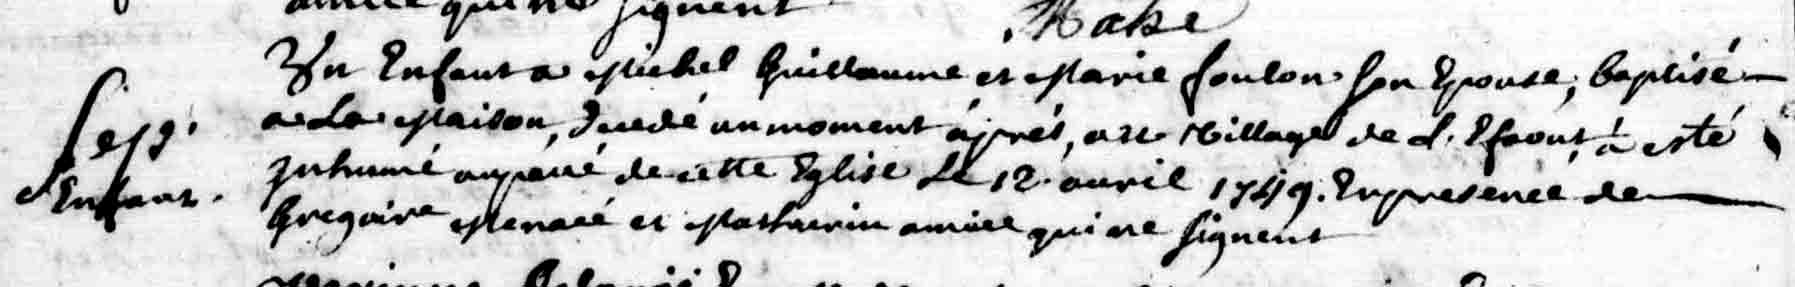 qui ne signent
Make
Un Enfant a Michel Guillaume et Marie foulon son Epouse, baptisé
a La Maison, decedé un moment aprés, au Village de a esté
Sep.
d'Enfant.
Inhumé au pavé de cette Eglise Le 12. avril 1749. En presence de
Gregoire et Mathurin amice qui ne signent